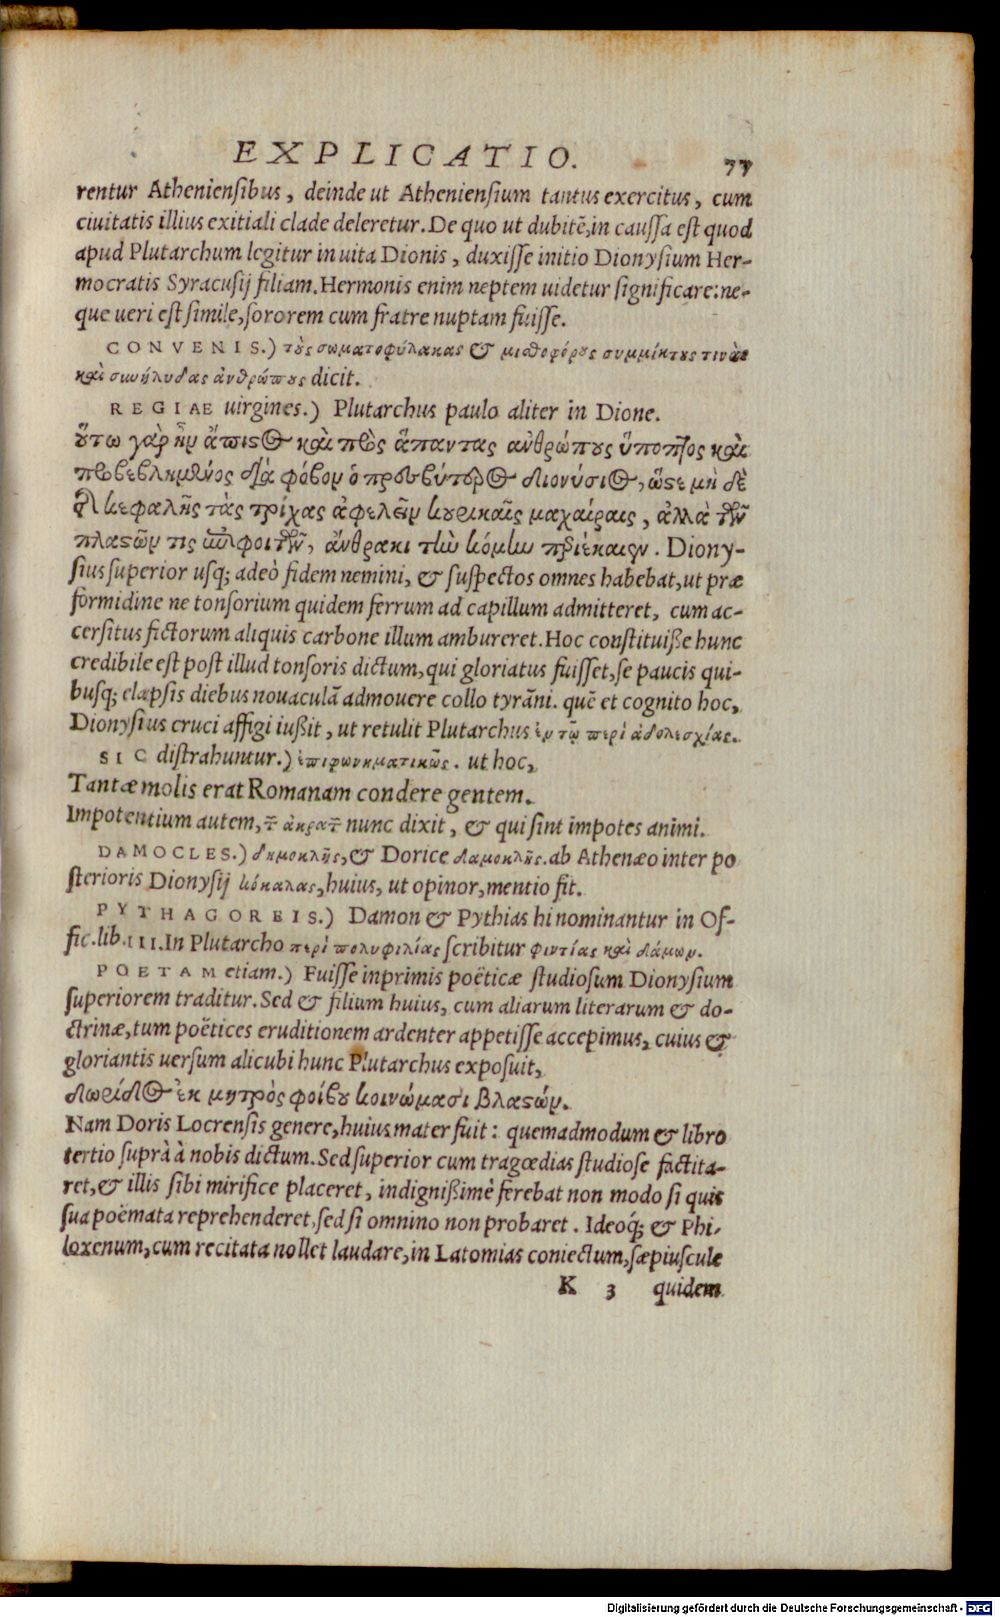 EXPLICATIO. 77
rentur Atheniensibus, deinde ut Atheniensium tantus exercitus, cum
ciuitatis illius exitiali clade deleretur. De quo ut dubitē, in caussa est quod
apud Plutarchum legitur in uita Dionis, duxisse initio Dionysium Her-
mocratis Syracusij filiam. Hermonis enim neptem uidetur significare: ne-
que ueri est simile, sororem cum fratre nuptam fuisse.
CONVENIS.) τοὺς σωματοφύλακας & μισθοφόρους συμμίκτους τινὰς
καὶ συνήλυδας ἀνθρώπους dicit.
REGIAE uirgines.) Plutarchus paulo aliter in Dione.
οὕτω γὰρ ἦν ἄπιστος καὶ πρὸς ἅπαντας ἀνθρώπους ὕποπτος καὶ
προβεβλημένος διὰ φόβον ὁ πρεσβύτερος Διονύσιος, ὥστε μὴ δὲ
τῆς κεφαλῆς τὰς τρίχας ἀφελεῖν κουρικαῖς μαχαίραις, ἀλλὰ τῶν
πλαστῶν τις ἐπιφοιτῶν, ἄνθρακι τὴν κόμην περιέκαιεν. Diony-
sius superior usq; adeò fidem nemini, & suspectos omnes habebat, ut præ
formidine ne tonsorium quidem ferrum ad capillum admitteret, cum ac-
cersitus fictorum aliquis carbone illum ambureret. Hoc constituiße hunc
credibile est post illud tonsoris dictum, qui gloriatus fuisset, se paucis qui-
busq; elapsis diebus nouaculā admouere collo tyrāni. quē et cognito hoc,
Dionysius cruci affigi iußit, ut retulit Plutarchus ἐν τῷ περὶ ἀδολεσχίας.
SIC distrahuntur.) ἐπιφωνηματικῶς. ut hoc,
Tantæ molis erat Romanam condere gentem.
Impotentium autem, τ̄ ἀκρατ̄ nunc dixit, & qui sint impotes animi.
DAMOCLES.) δημοκλῆς, & Dorice δαμοκλῆς. ab Athenæo inter po
sterioris Dionysij κόκαλας, huius, ut opinor, mentio fit.
PYTHAGOREIS.) Damon & Pythias hi nominantur in Of-
fic. lib. III. In Plutarcho περὶ πολυφιλίας scribitur φιντίας καὶ δάμων.
POETAM etiam.) Fuisse inprimis poëticæ studiosum Dionysium
superiorem traditur. Sed & filium huius, cum aliarum literarum & do-
ctrinæ, tum poëtices eruditionem ardenter appetisse accepimus, cuius &
gloriantis uersum alicubi hunc Plutarchus exposuit,
Δωρίδος ἐκ μητρὸς φοίβου κοινώμασι βλαστών.
Nam Doris Locrensis genere, huius mater fuit: quemadmodum & libro
tertio suprà à nobis dictum. Sed superior cum tragœdias studiose factita-
ret, & illis sibi mirifice placeret, indignißimè ferebat non modo si quis
sua poëmata reprehenderet, sed si omnino non probaret. Ideoq́; & Phi-
loxenum, cum recitata nollet laudare, in Latomias coniectum, sæpiuscule
K 3 quidem
Digitalisierung gefördert durch die Deutsche Forschungsgemeinschaft - DFG